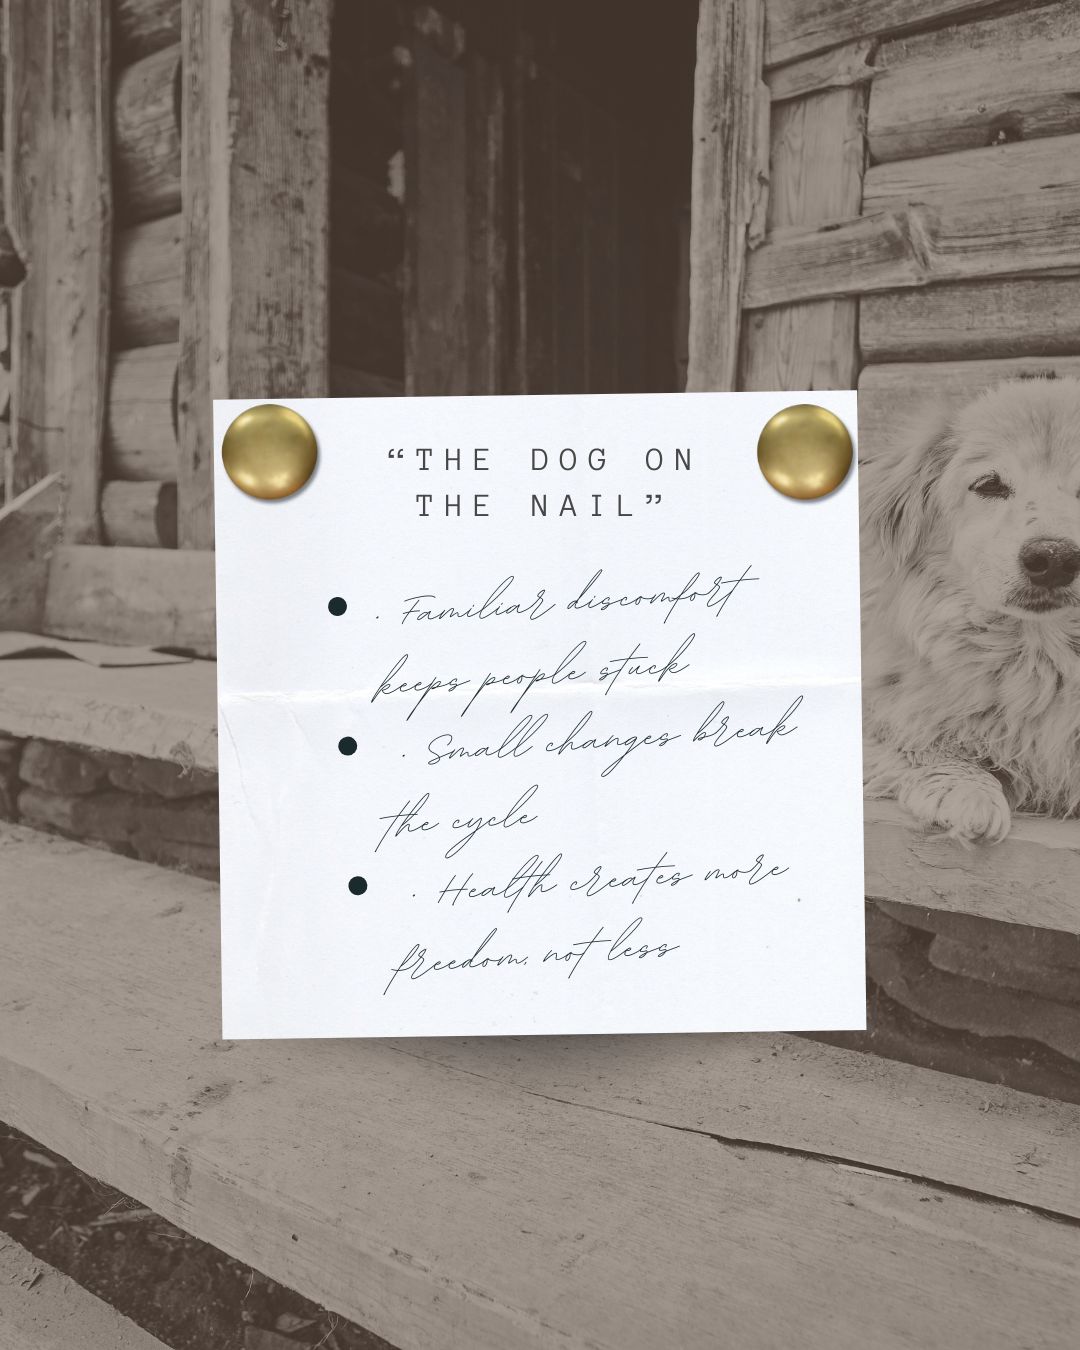 “THE DOG ON
THE NAIL”
• . Familiar discomfort
keeps people stuck
• . Small changes break
the cycle
• . Health creates more
freedom, not less